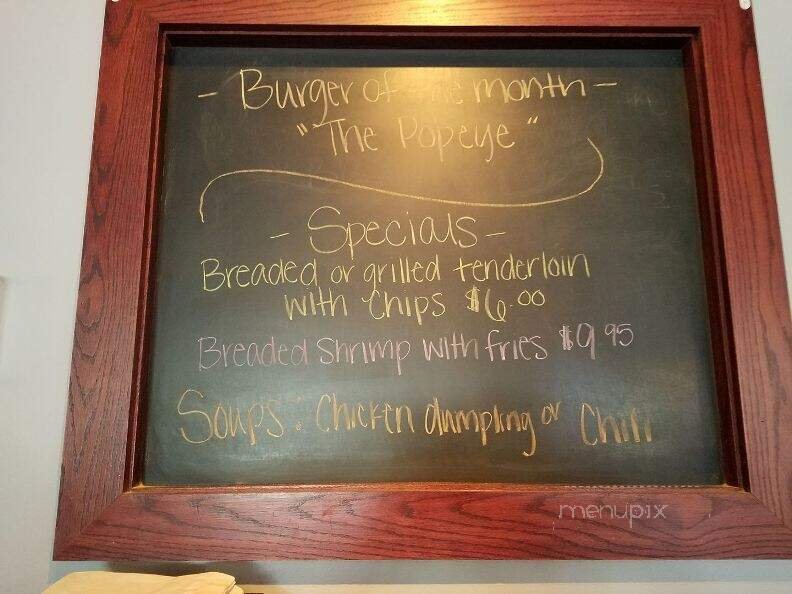 - Burger of the month -
"The Popeye"
- Specials -
Breaded or grilled tenderloin
with chips $6.00
Breaded Shrimp with fries $9.95
Soups: Chicken dumpling or Chili
menupix